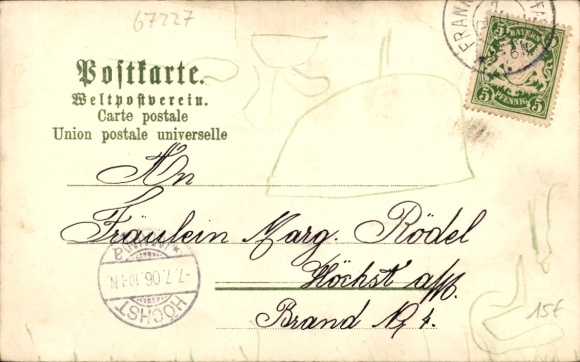 67227
Postkarte.
Weltpostverein.
Carte postale
Union postale universelle
FRANK
5 BAYERN 5
5 PFENNIG 5
An
Fräulein Marg. Rödel
Höchst a/M.
Brand No 4.
HÖCHST
-7.7.06.10-11N
(MAIN)
a
15€